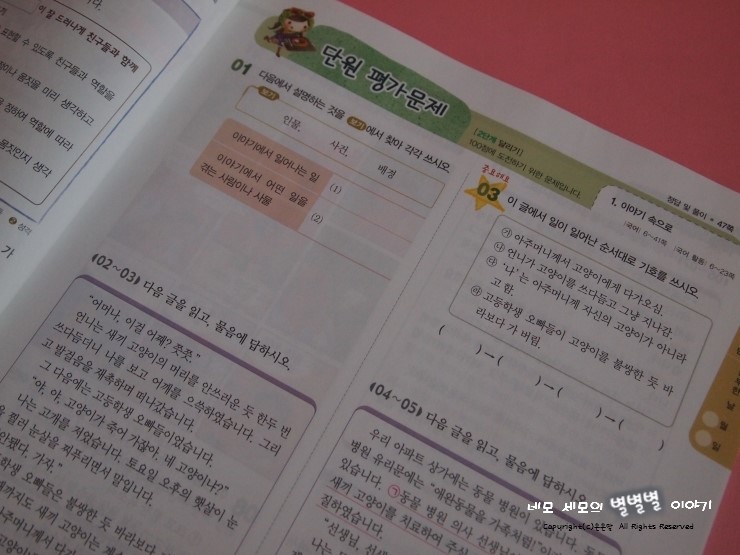 다.
가 잘 드러나게 친구들과 함께
표현할 수 있도록 친구들과 역할을
몸짓을 미리 생각하고
정하여 역할에 따라
몸짓인지 생각
성격
가
단원 평가문제
[2단계 달리기]
100점에 도전하기 위한 문제입니다.
정답 및 풀이 • 47쪽
1. 이야기 속으로
국어: 6~41쪽 국어 활동: 6~23쪽
01 다음에서 설명하는 것을 보기에서 찾아 각각 쓰시오.
보기
인물, 사건, 배경
이야기에서 일어나는 일 (1)
이야기에서 어떤 일을
겪는 사람이나 사물 (2)
(02~03) 다음 글을 읽고, 물음에 답하시오.
"어머나, 이걸 어째? 쯧쯧."
언니는 새끼 고양이의 머리를 안쓰러운 듯 한두 번
쓰다듬더니 나를 보고 어깨를 으쓱하였습니다. 그리
고 발걸음을 재촉하며 떠나갔습니다.
그 다음에는 고등학생 오빠들이었습니다.
"야, 야, 고양이가 죽어 가잖아. 네 고양이냐?"
나는 고개를 저었습니다. 토요일 오후의 햇살이 눈
찔러 눈살을 찌푸리면서 말입니다.
안됐다. 가자."
학생 오빠들은 불쌍한 듯 바라보다
까지도 새끼 고양이는
아주머니께서 다
중요해요
03 이 글에서 일이 일어난 순서대로 기호를 쓰시오.
㉮ 아주머니께서 고양이에게 다가오심.
㉯ 언니가 고양이를 쓰다듬고 그냥 지나감.
㉰ '나'는 아주머니께 자신의 고양이가 아니라
고 함.
㉱ 고등학생 오빠들이 고양이를 불쌍한 듯 바
라보다 가 버림.
( ) → ( ) → ( ) → ( )
(04~05) 다음 글을 읽고, 물음에 답하시오.
우리 아파트 상가에는 동물 병원이
병원 유리문에는 "애완동물을 가족처럼!"
있습니다. ㉠동물 병원 의사 선생님
새끼 고양이를 치료하여 주실
질하였습니다.
"선생님, 선생
나는
월
일
네모 세모의 별별별 이야기
Copyright(c)은은맘 All Rights Reserved